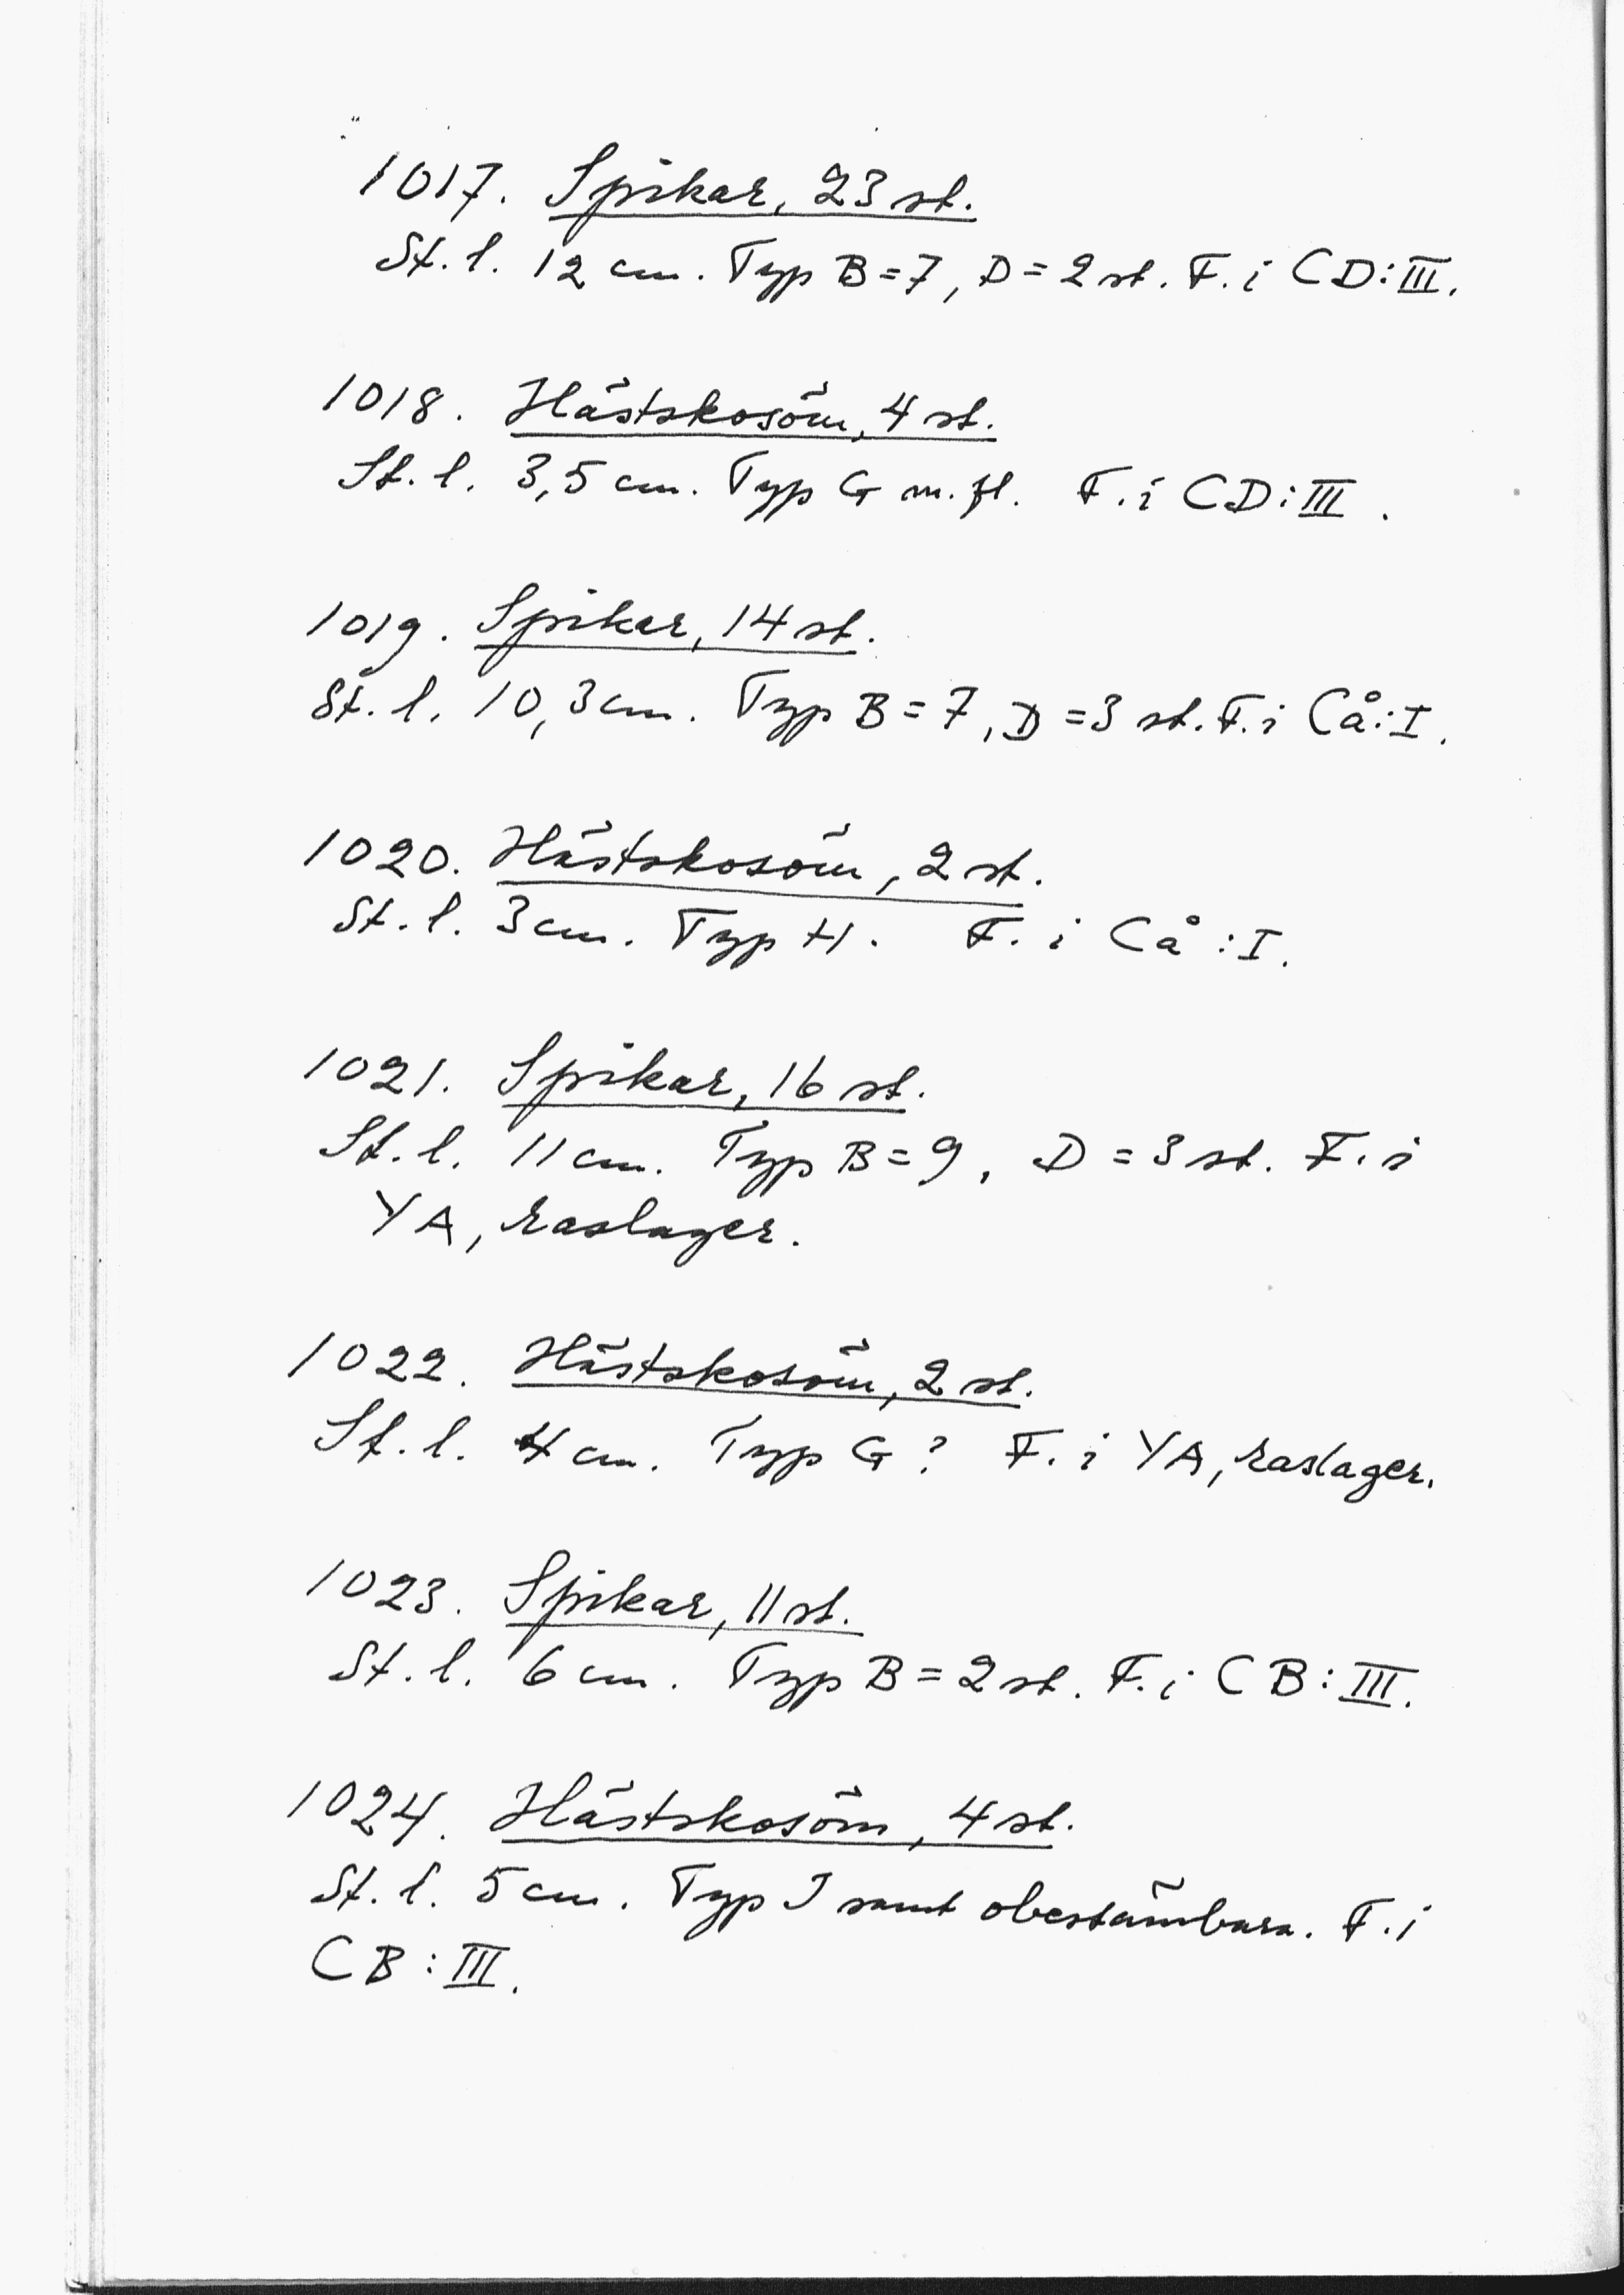 1017. Spikar, 23 st.
St. l. 12 cm. Typ B=7, D=2 st. F. i CD:III.
1018. Hästskosöm, 4 st.
St. l. 3,5 cm. Typ G m. fl. F. i CD:III.
1019. Spikar, 14 st.
St. l. 10,3 cm. Typ B=7, D=3 st. F. i Cå:I.
1020. Hästskosöm, 2 st.
St. l. 3 cm. Typ H. F. i Cå:I.
1021. Spikar, 16 st.
St. l. 11 cm. Typ B=9, D=3 st. F. i
YA, raslager.
1022. Hästskosöm, 2 st.
St. l. 4 cm. Typ G? F. i YA, raslager.
1023. Spikar, 11 st.
St. l. 6 cm. Typ B=2 st. F. i CB:III.
1024. Hästskosöm, 4 st.
St. l. 5 cm. Typ I samt obestämbara. F. i
CB:III.